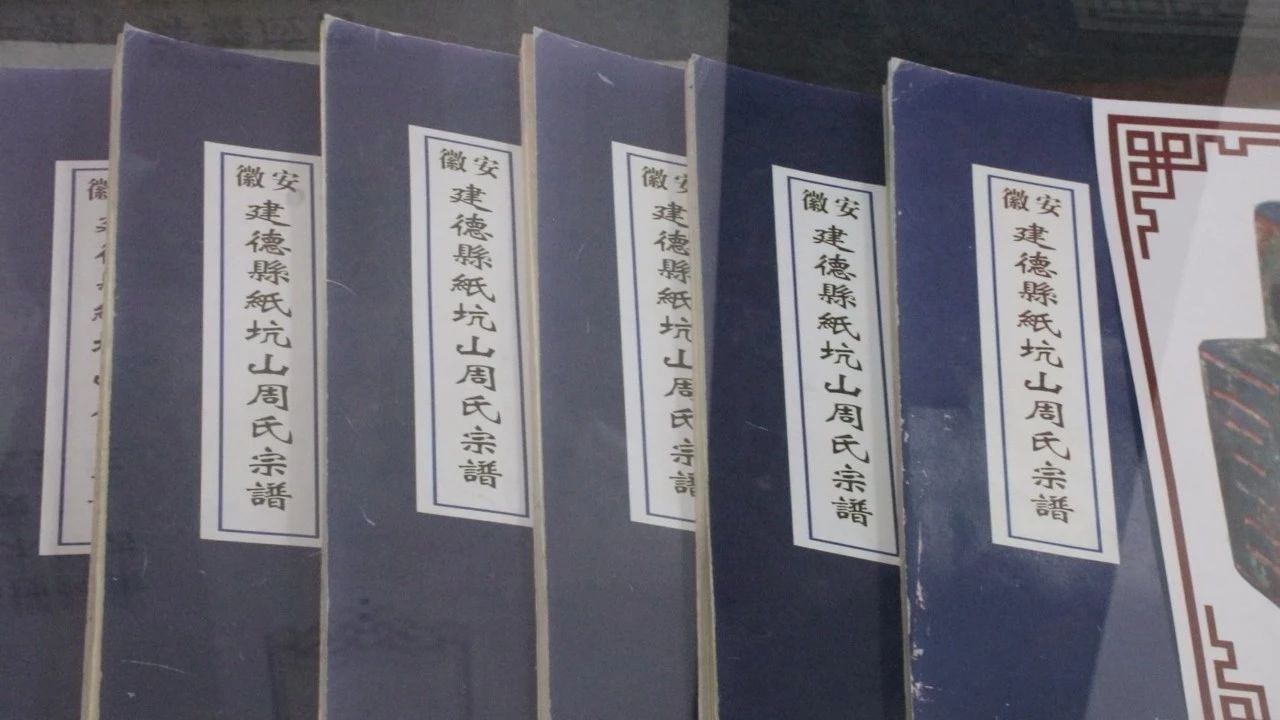 安徽
建德縣紙坑山周氏宗譜
安徽
建德縣紙坑山周氏宗譜
安徽
建德縣紙坑山周氏宗譜
安徽
建德縣紙坑山周氏宗譜
安徽
建德縣紙坑山周氏宗譜